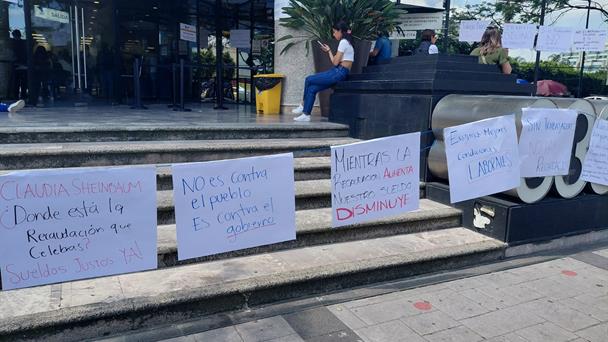 SALIDA
CLAUDIA SHEINBAUM
¿Donde está la
Recaudación que
Celebas?
Sueldos Justos YA!
NO es contra
el pueblo
Es contra el
gobierno
MIENTRAS LA
RECAUDACION AUMENTA
NUESTRO SUELDO
DISMINUYE
Exigimos Mejores
Condiciones
LABORALES
SIN TRABAJADOR